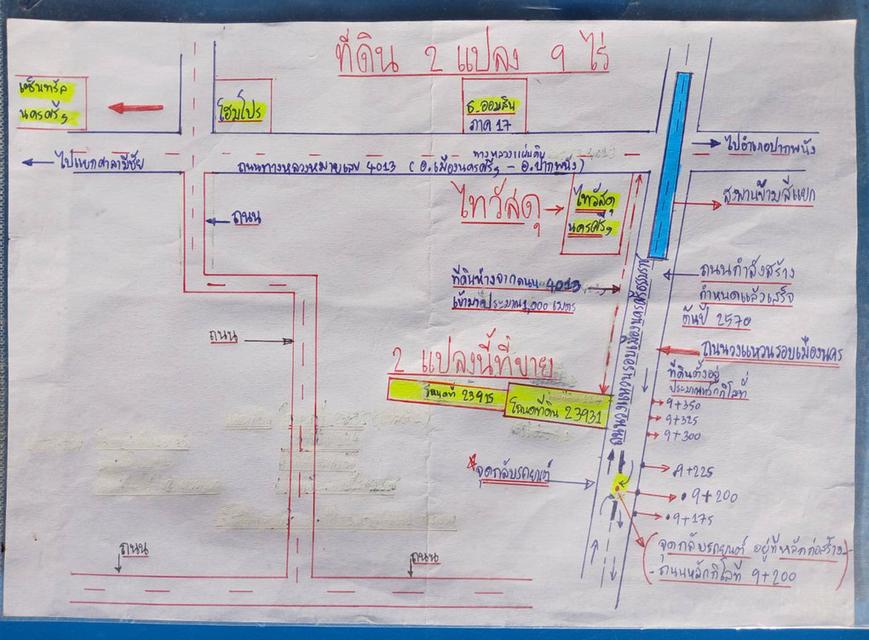 ที่ดิน 2 แปลง 9 ไร่
เซ็นทรัล
นครศรีฯ
โฮมโปร
ธ.ออมสิน
ภาค 17
ไปแยกศาลามีชัย
ทางหลวงแผ่นดิน 4013
ถนนทางหลวงหมายเลข 4013 (อ.เมืองนครศรีฯ - อ.ปากพนัง)
ไปอำเภอปากพนัง
ถนน
ไทวัสดุ
ไทวัสดุ
นครศรีฯ
สะพานข้ามสี่แยก
ที่ดินห่างจากถนน 4013
เข้ามาประมาณ 1,000 เมตร
ถนนกำลังสร้าง
กำหนดแล้วเสร็จ
ต้นปี 2570
ถนน
2 แปลงนี้ที่ขาย
ถนนวงแหวนรอบเมืองนคร
โฉนดที่ 23915
โฉนดที่ดิน 23931
ถนนวงแหวนรอบเมืองนครศรีธรรมราช
ที่ดินตั้งอยู่
ประมาณหลักกิโลที่
9+350
9+325
9+300
จุดกลับรถยนต์
9+225
9+200
9+175
ถนน
ถนน
(จุดกลับรถยนต์ อยู่ที่หลักก่อสร้าง
- ถนนหลักกิโลที่ 9+200)